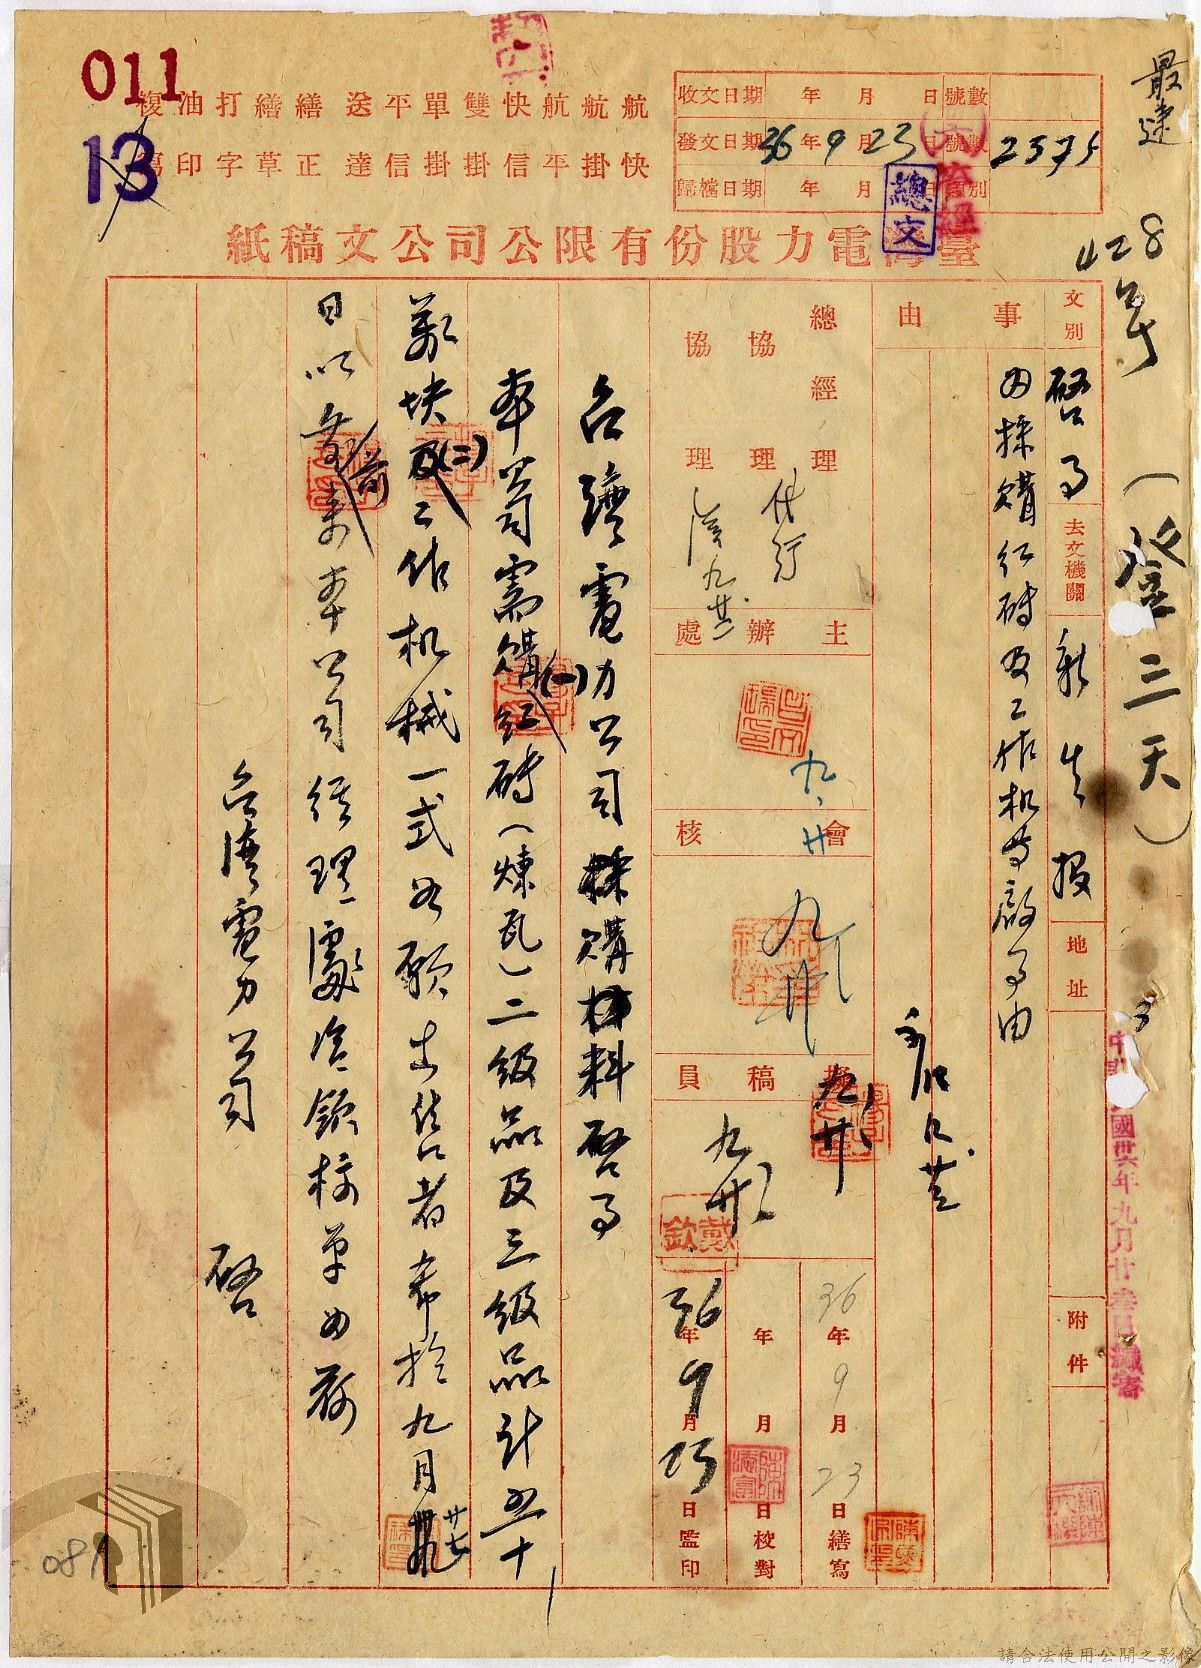 最速
428号(登三天)
中華民國卅六年九月廿叁日繕寄
011
13
航航航快雙單平送繕繕打油複
快掛平信掛掛信達正草字印寫
收文日期 年 月 日 號數
發文日期 36年9月23日 號數 2375
歸檔日期 年 月 日 類別
總文
臺灣電力股份有限公司公文稿紙
文別 啓事 去文機關 新生报 地址 附件
事由
为採購红砖及工作机等啟事由
總經理
協理 代行
協理
主辦處
九、廿
會核
擬稿員
戴欽
36年9月23日繕寫
年 月 日校對
36年9月23日監印
台灣電力公司採購材料啓事
本公司需購(一)红砖(煉瓦)二級品及三級品計五十
萬块及(二)工作机械一式如願出售者希於九月廿七
日以前来本公司經理處洽領標單为荷
台灣電力公司 啓
081
請合法使用公開之影像